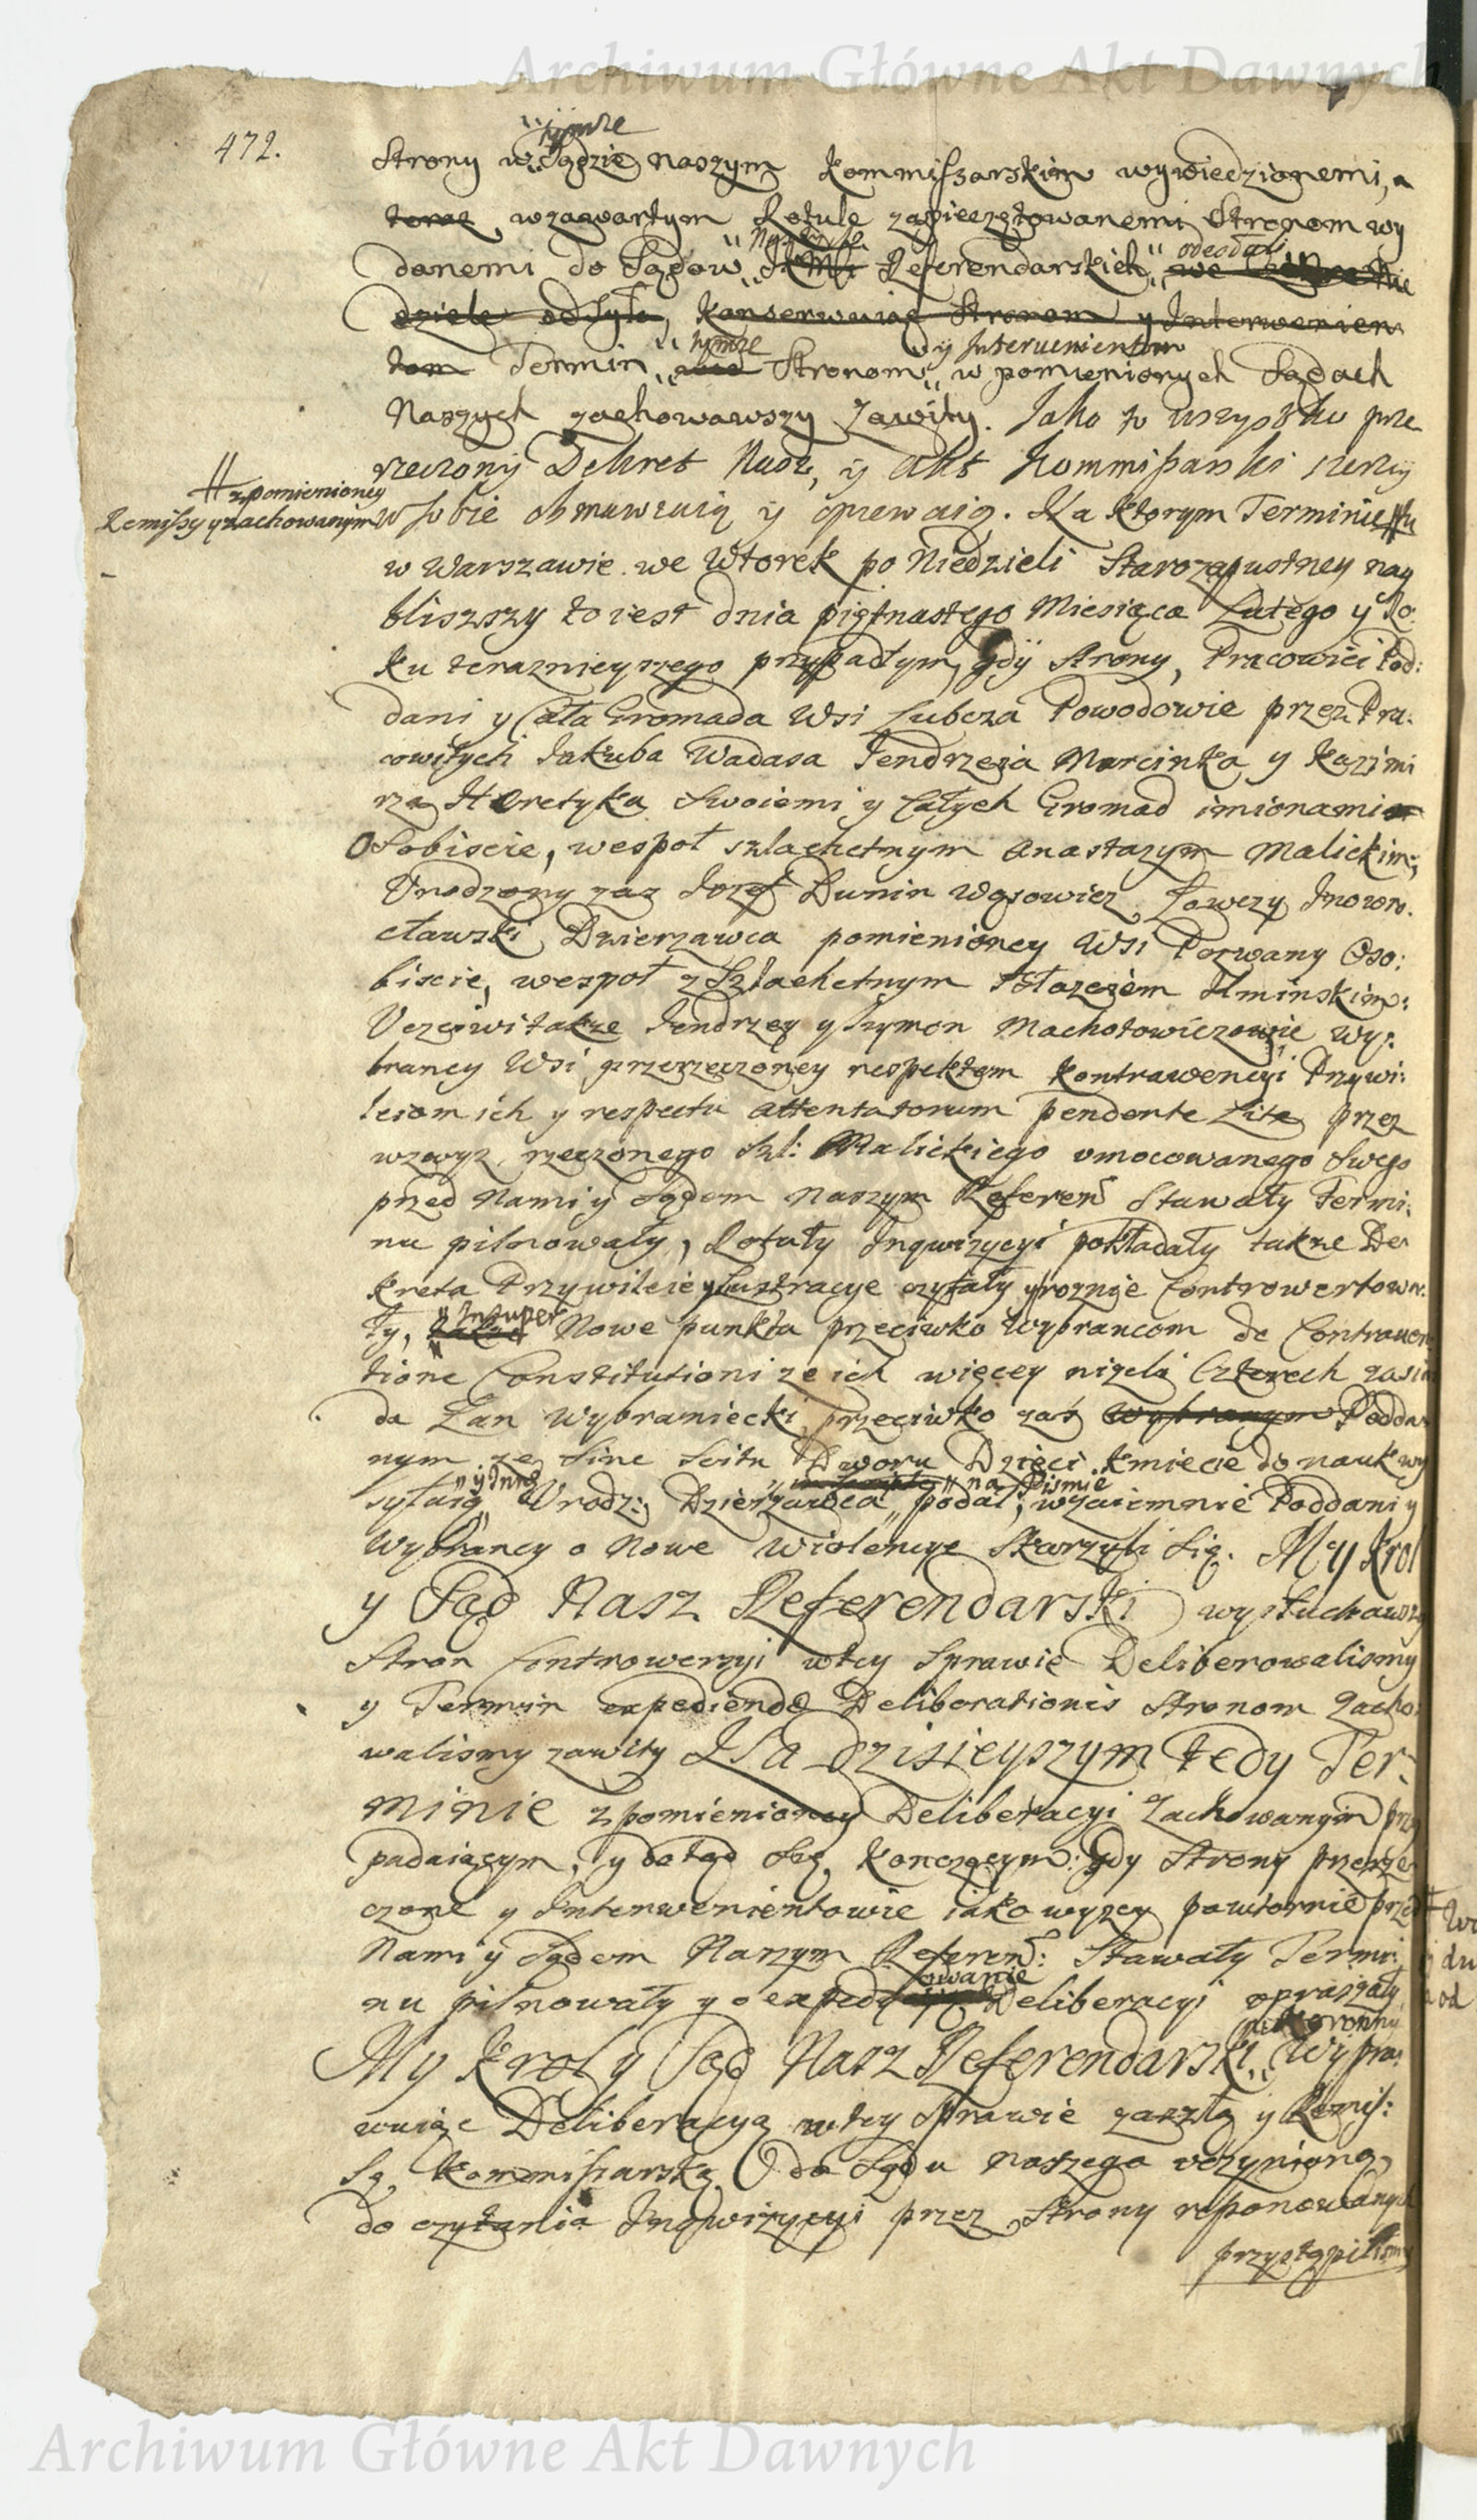 Archiwum Główne Akt Dawnych
472.
tymże
Strony w Sądzie naszym Kommissarskim wywiedzionemi, a
teraz, w zawartym Rotule zapieczętowanemi Stronom wy
odesłali
danemi do Sądow Referendarskich
dziele odsyła, konserwuiąc Stronom y Interwenien
tymże y Interwenientom
tom Termin Stronom w pomienionych Sądach
Naszych zachowawszy Zawity. Jako to wszystko prze
rzeczony Dekret Nasz, y Akt Kommissarski szerzy
# z pomienioney
Remissy y zachowanym
w sobie obmawiaią y opiewaią. Na ktorym Terminie # tu
w Warszawie we Wtorek po Niedzieli Starozapustney nay
bliszszy to iest dnia piętnastego Miesiąca Lutego y Ro:
ku teraznieyszego przypadłym, gdÿ Strony, Pracowici Pod:
dani y Cała Gromada Wsi Lubcza Powodowie przez Pra:
cowitych Jakuba Wadasa Jendrzeia Marcinka y Kazimi
rza Heretyka Swoiemi y Całych Gromad imionami
Osobiscie, wespoł szlachetnym Anastazym Malickim;
Urodzony zas Jozef Dunin Wąsowicz Łowczy Inowro:
cławski Dzierzawca pomienioney Wsi Pozwany Oso:
biscie, wespoł z Szlachetnym Błazeiem Uminskim:
Uczciwi takze Jendrzey y Szymon Machotowiczowie Wy:
brancy Wsi przerzeczoney respektem Kontrawencyi Przywi:
leiom ich y respectu attentatorum pendente Lite przez
wzwyz rzeczonego Szl: Malickiego umocowanego Swego
przed Nami y Sądem Naszym Referen: Stawały Termi:
nu pilnowały, Rotuły Inqwizycyi pokładały takze De
kreta Przywileie y Lustracye czytały y roznie Controwertowa:
Insuper
ły, takze Nowe punkta przeciwko Wybrancom de Contraven
tione Constitutioni ze ich więcey nizeli Czterech zasia
da Łan Wybraniecki, przeciwko zaś Wybranym Podda
nym ze sine scitu Dworu Dzieci Kmiecie do nauk wy
y Inne na Pismie
syłaią, Urodz: Dzierzawca podał, wzaiemnie Poddani y
Wybrancy o Nowe Wiolencye Skarzyli się. My Krol
y Sąd Nasz Referendarski wysłuchawszy
Stron Controwersyi w tey Sprawie Deliberowalismy
y Termin expediendæ Deliberationis Stronom Zacho:
walismy zawity Na dzisieyszym tedy Ter:
minie z pomienioney Deliberacyi Zachowanym przy
padaiącym, y dotąd Się Konczącym: Gdy Strony przerze
czone y Interwenientowie iako wyzey powtornie przed
Nami y Sądem Naszym Referen: Stawały Termi:
owanie
nu pilnowały y o expedy Deliberacyi upraszały
Koronny
My Krol y Sąd Nasz Referendarski Wypra:
wuiąc Deliberacyą w tey Sprawie zaszłą y Remis:
są Kommissarską do Sądu naszego uczynioną,
do czytania Inqwizycyi przez Strony reponowanych
przystąpilismy
Archiwum Główne Akt Dawnych